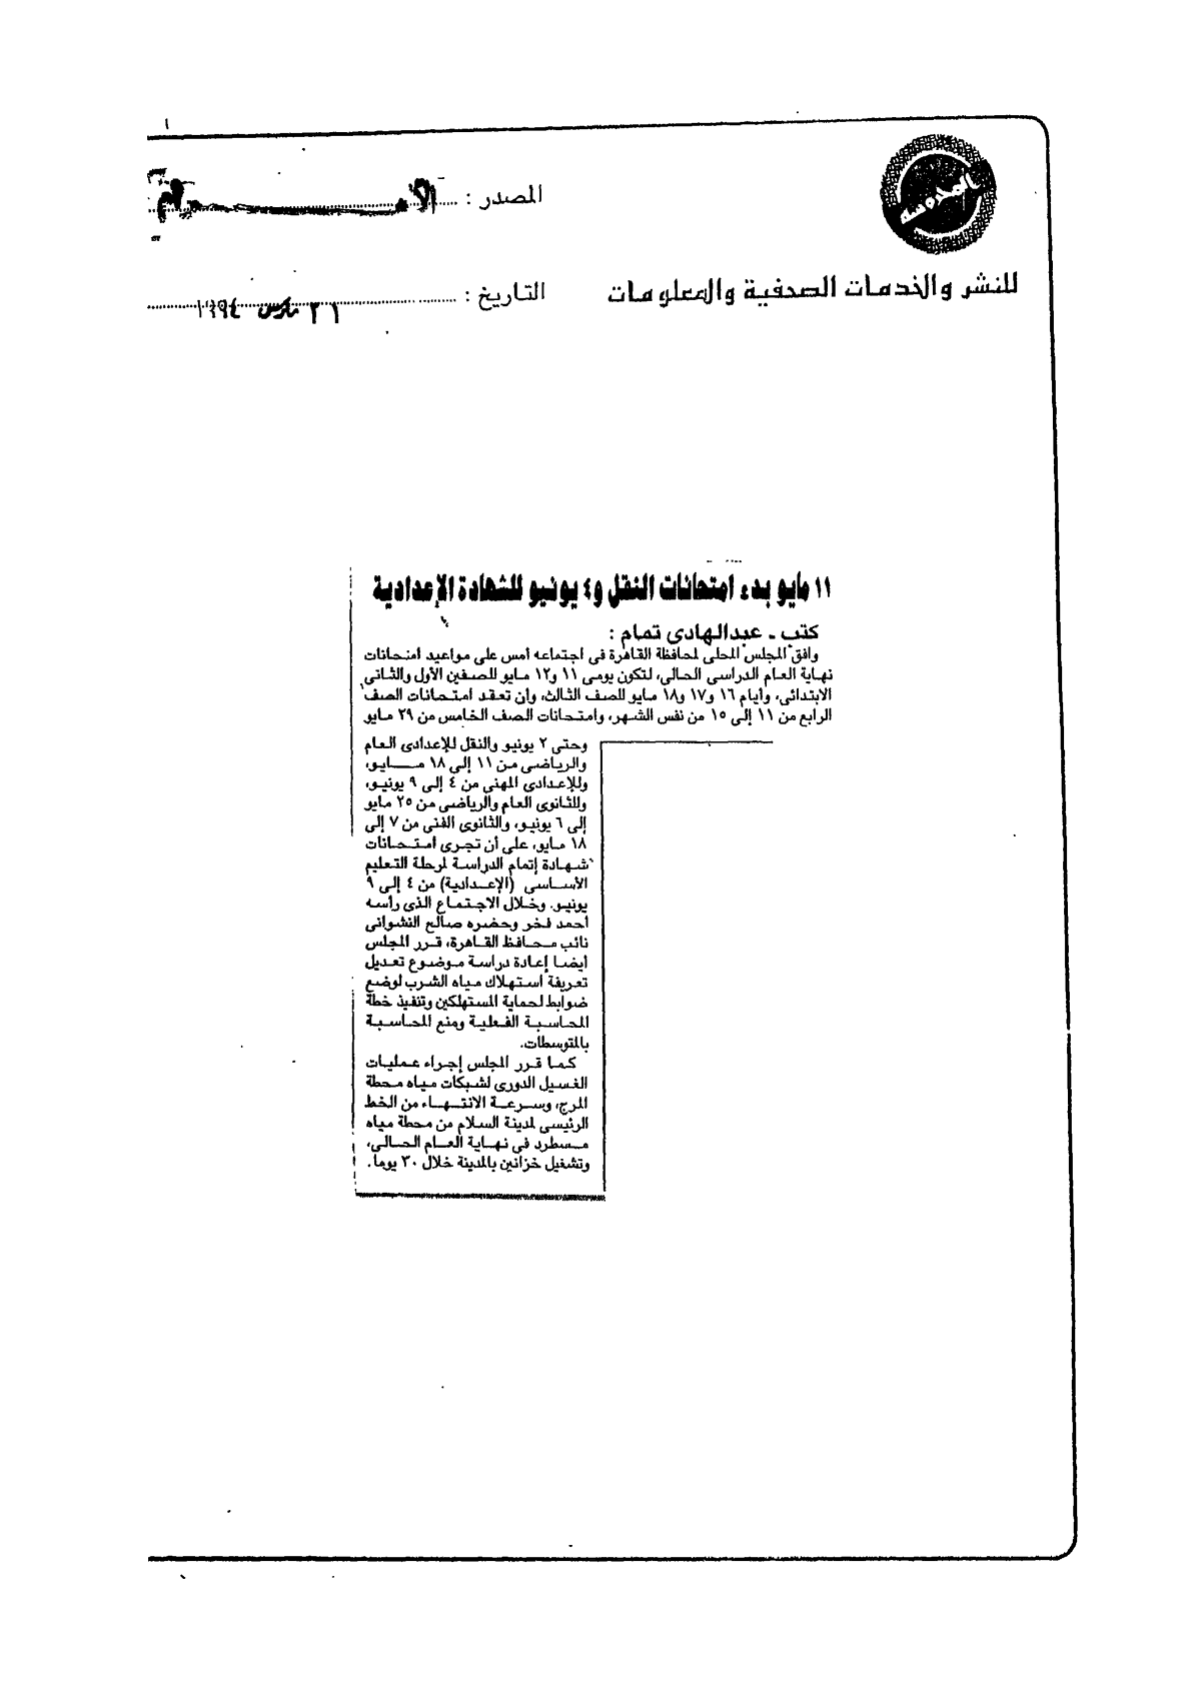 المصدر :
للنشر والخدمات الصحفية والمعلومات
التاريخ : ٢١ مارس ١٩٩٤
١١ مايو بدء امتحانات النقل و٤ يونيو للشهادة الإعدادية
كتب ـ عبدالهادى تمام :
وافق المجلس المحلى لمحافظة القاهرة فى اجتماعه أمس على مواعيد امتحانات
نهاية العام الدراسى الحالى، لتكون يومى ١١ و١٢ مايو للصفين الأول والثانى
الابتدائى، وأيام ١٦ و١٧ و١٨ مايو للصف الثالث، وأن تعقد امتحانات الصف
الرابع من ١١ إلى ١٥ من نفس الشهر، وامتحانات الصف الخامس من ٢٩ مايو
وحتى ٢ يونيو والنقل للإعدادى العام
والرياضى من ١١ إلى ١٨ مايو،
وللإعدادى المهنى من ٤ إلى ٩ يونيو،
وللثانوى العام والرياضى من ٢٥ مايو
إلى ٦ يونيو، والثانوى الفنى من ٧ إلى
١٨ مايو، على أن تجرى امتحانات
شهادة إتمام الدراسة لمرحلة التعليم
الأساسى (الإعدادية) من ٤ إلى ٩
يونيو. وخلال الاجتماع الذى رأسه
أحمد فخر وحضره صالح النشوانى
نائب محافظ القاهرة، قرر المجلس
أيضا إعادة دراسة موضوع تعديل
تعريفة استهلاك مياه الشرب لوضع
ضوابط لحماية المستهلكين وتنفيذ خطة
المحاسبة الفعلية ومنع المحاسبة
بالمتوسطات.
كما قرر المجلس إجراء عمليات
الغسيل الدورى لشبكات مياه محطة
المرج، وسرعة الانتهاء من الخط
الرئيسى لمدينة السلام من محطة مياه
مسطرد فى نهاية العام الحالى،
وتشغيل خزانين بالمدينة خلال ٣٠ يوما.